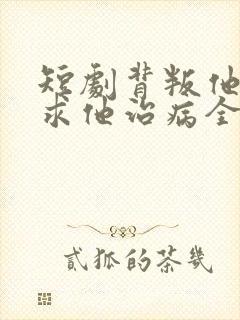 短劇背叛他
求他治病全
貳狐的茶幾